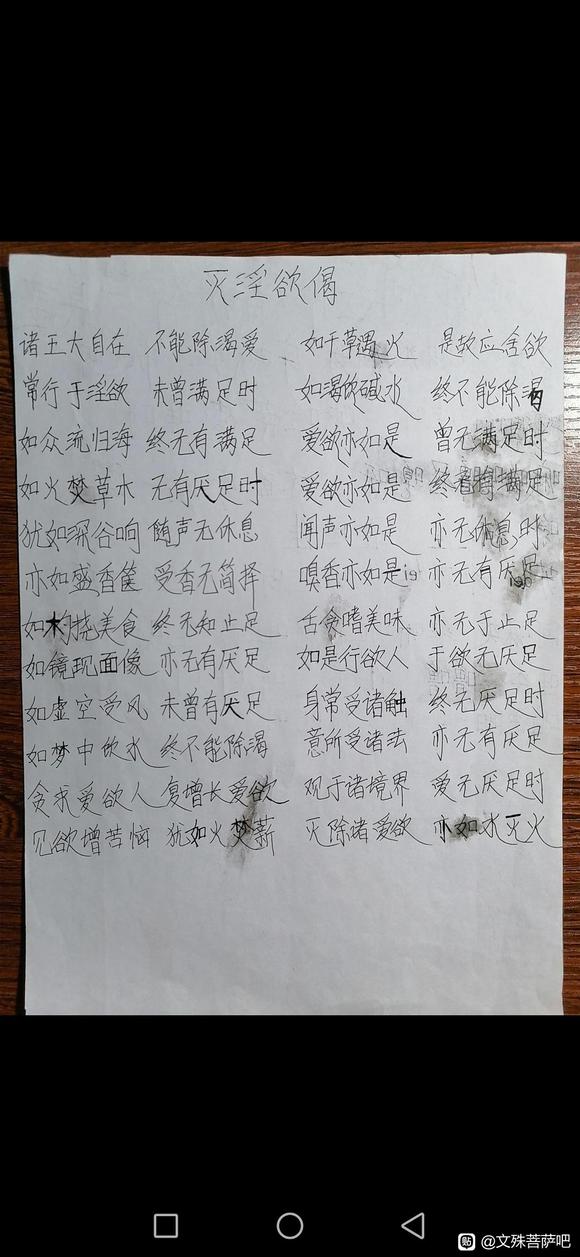 灭淫欲偈
诸王大自在 不能除渴爱 如干草遇火 是故应舍欲
常行于淫欲 未曾满足时 如渴饮碱水 终不能除渴
如众流归海 终无有满足 爱欲亦如是 曾无满足时
如火焚草木 无有厌足时 爱欲亦如是 终着有满足
犹如深谷响 随声无休息 闻声亦如是 亦无休息时
亦如盛香箧 受香无简择 嗅香亦如是 亦无有厌足
如杓挠美食 终无知止足 舌贪嗜美味 亦无于止足
如镜现面像 亦无有厌足 如是行欲人 于欲无厌足
如虚空受风 未曾有厌足 身常受诸触 终无厌足时
如梦中饮水 终不能除渴 意所受诸法 亦无有厌足
贪求爱欲人 复增长爱欲 观于诸境界 爱无厌足时
见欲增苦恼 犹如火焚薪 灭除诸爱欲 亦如水灭火
贴 @文殊菩萨吧